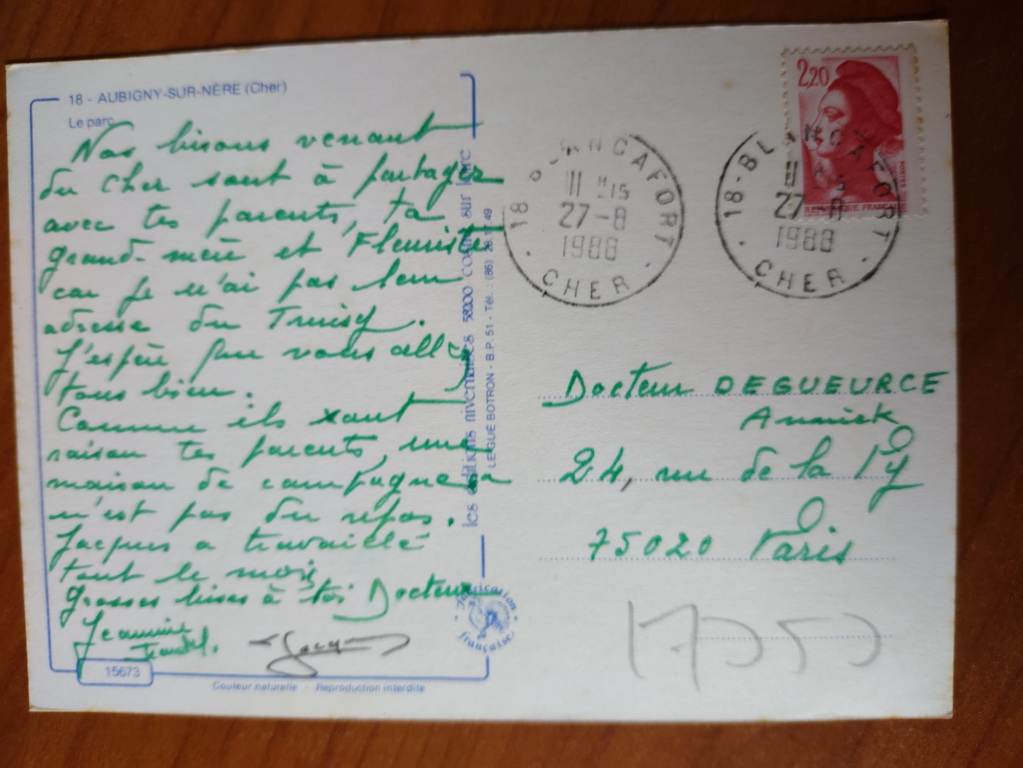 18 - AUBIGNY-SUR-NÈRE (Cher)
Le parc
Nos bisous venant
du Cher sont à partager
avec tes parents, ta
grand-mère et Fleuriste
car je n'ai pas leur
adresse du
J'espère que vous allez
tous bien.
Comme ils xont
raison tes parents, une
maison de campagne
n'est pas du repos.
Jacques a travaillé
tout le mois
grosses bises à toi Docteur
Jeannine
Jacq
15673
Couleur naturelle - Reproduction interdite
les éditions nivernaises 58200 COSNE sur loire
LE GUÉ BOTRON - B.P. 51 - Tél. : (86) 28 49
Fabrication française
18 BLANCAFORT
11 H 15
27-8
1988
CHER
2,20
RÉPUBLIQUE FRANÇAISE
POSTES
18-BLANCAFORT
27-8
1988
CHER
Docteur DEGUEURCE
Annick
24, rue de la Py
75020 Paris